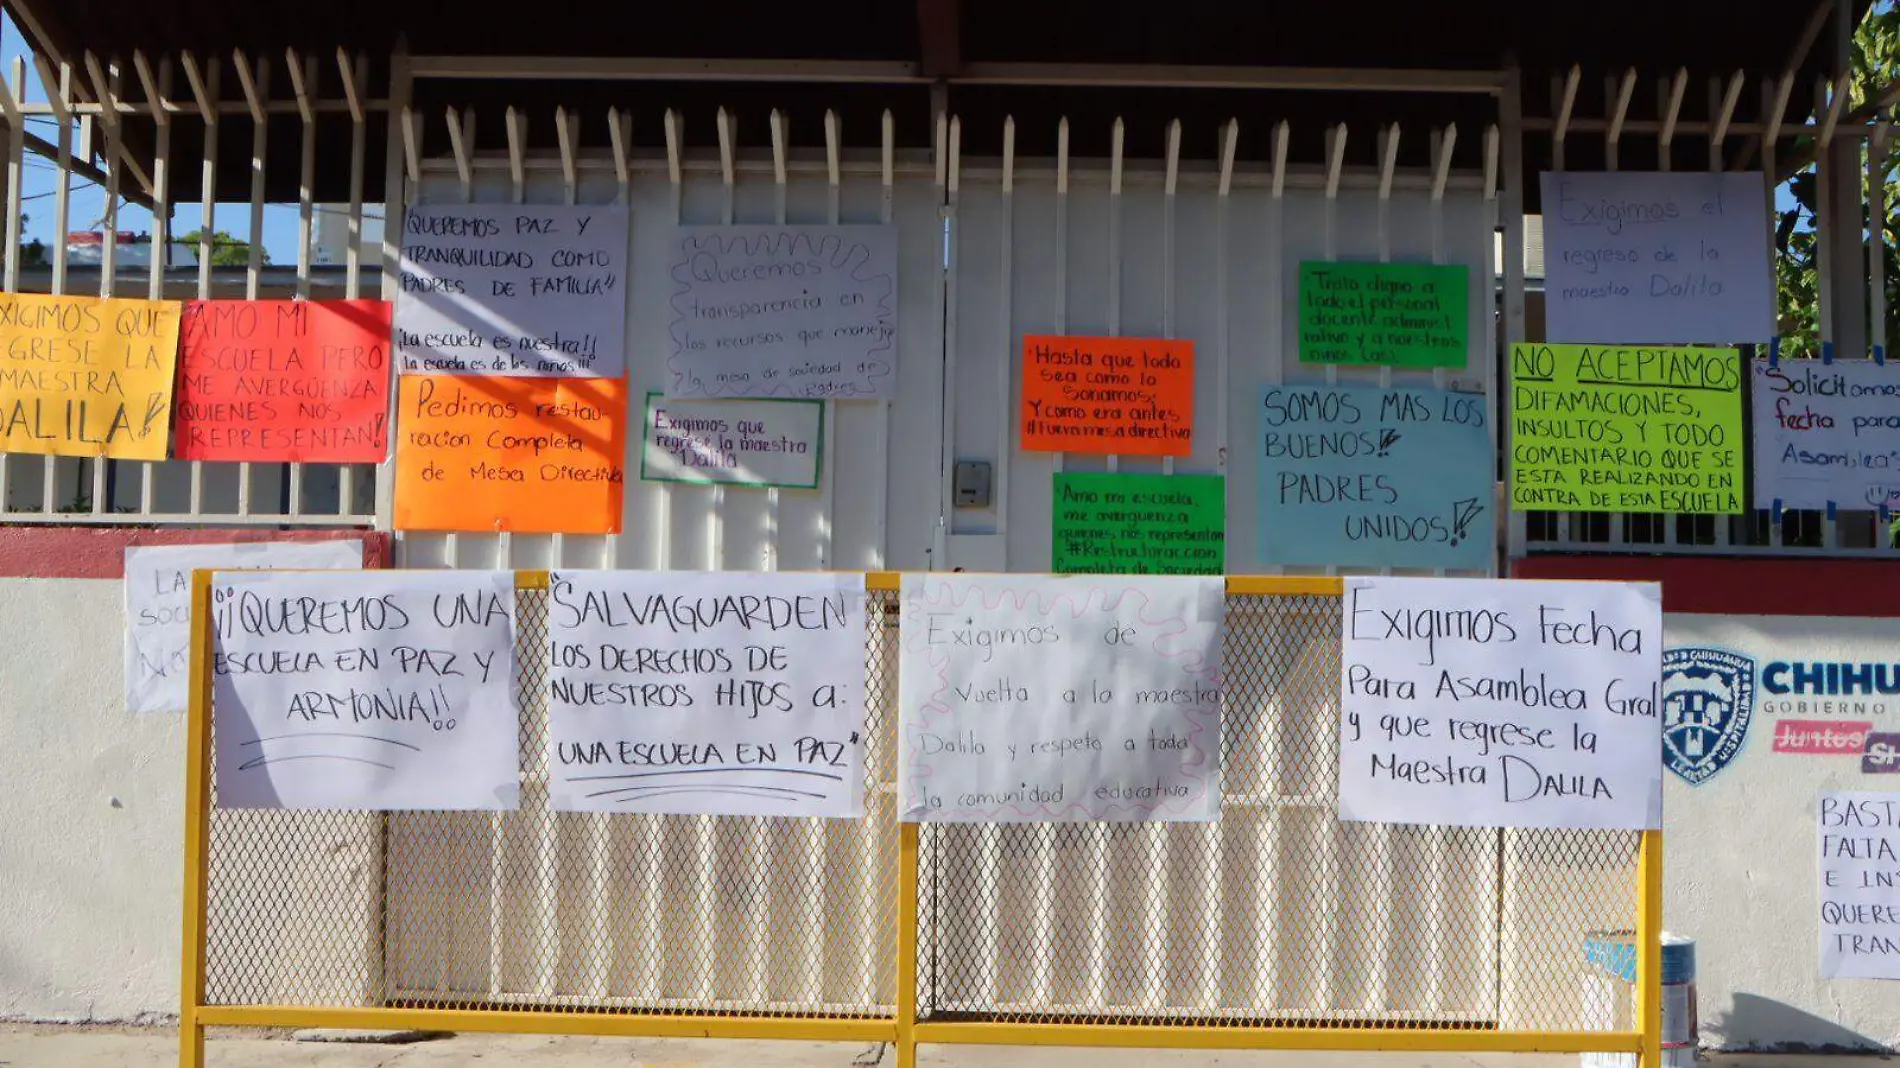 EXIGIMOS QUE
REGRESE LA
MAESTRA
DALILA!
AMO MI
ESCUELA PERO
ME AVERGÜENZA
QUIENES NOS
REPRESENTAN!
QUEREMOS PAZ Y
TRANQUILIDAD COMO
PADRES DE FAMILIA"
¡La escuela es nuestra!!
La escuela es de los niños!!!
Pedimos restau-
racion Completa
de Mesa Directiva
Queremos
transparencia en
los recursos que maneja
la mesa de sociedad de
Padres
Exigimos que
regrese la maestra
Dalila
"Hasta que todo
sea como lo
Sonamos;
Y como era antes
#Fuera mesa directiva
"Amo mi escuela,
me averguenza
quienes nos representan
#Restructuraccion
Completa de Sociedad
"Trato digno a
todo el personal
docente administ
rativo y a nuestros
niños (as).
SOMOS MAS LOS
BUENOS!!
PADRES
UNIDOS!!
Exigimos el
regreso de la
maestra Dalila
NO ACEPTAMOS
DIFAMACIONES,
INSULTOS Y TODO
COMENTARIO QUE SE
ESTA REALIZANDO EN
CONTRA DE ESTA ESCUELA
"Solicitamo
fecha para
Asamblea"
LA
SOC
NO
¡¡QUEREMOS UNA
ESCUELA EN PAZ Y
ARMONIA!!
"SALVAGUARDEN
LOS DERECHOS DE
NUESTROS HIJOS A:
UNA ESCUELA EN PAZ"
Exigimos de
Vuelta a la maestra
Dalila y respeto a toda
la comunidad educativa
Exigimos Fecha
Para Asamblea Gral
y que regrese la
Maestra DALILA
CHIHU
GOBIERNO
Juntos
BAST
FALTA
E IN
QUERE
TRAN